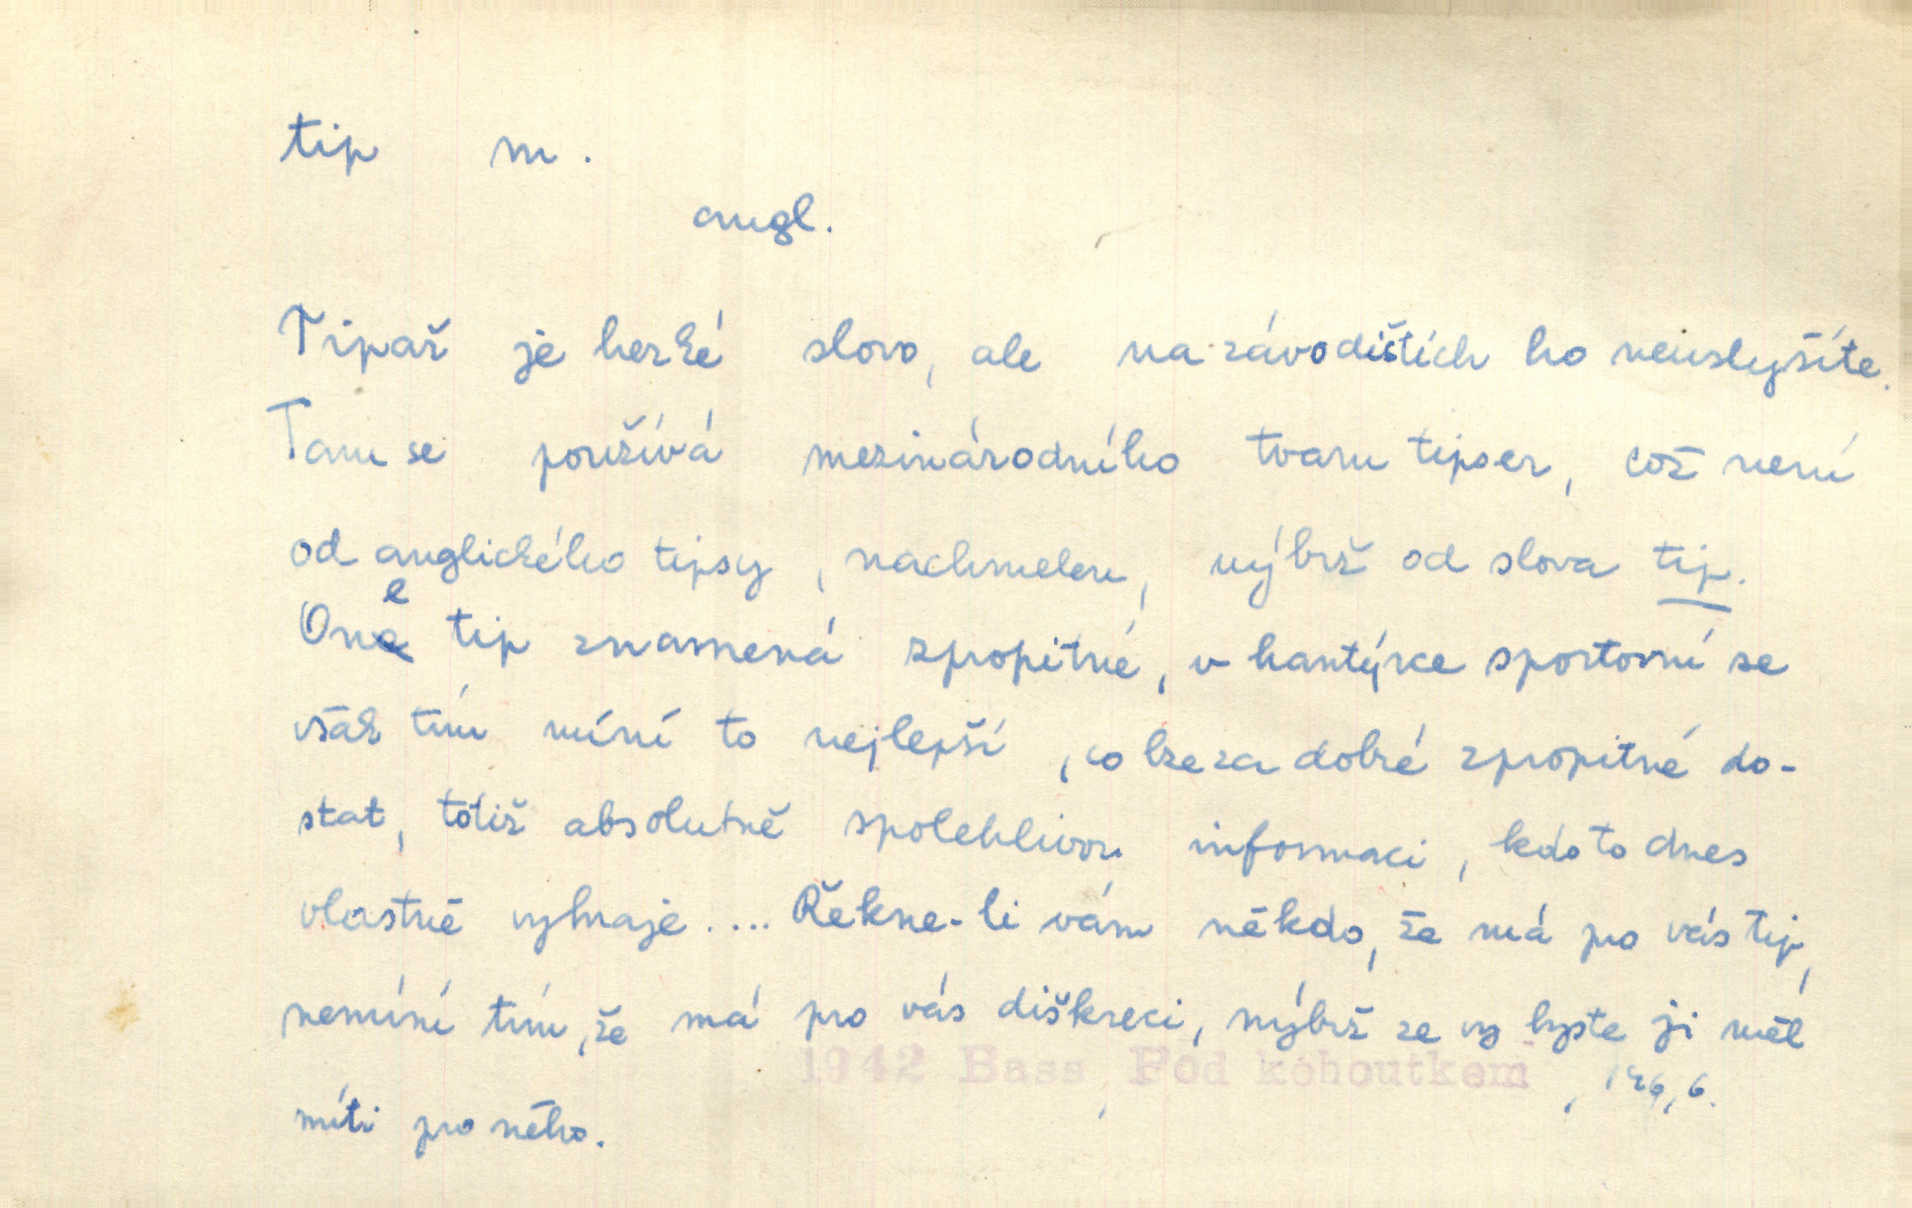 tip m.
angl.
Tipař je hezké slovo, ale na závodištích ho neuslyšíte.
Tam se používá mezinárodního tvaru tipser, což není
od anglického tipsy, nachmelen, nýbrž od slova tip.
One tip znamená zpropitné, v hantýrce sportovní se
však tím míní to nejlepší, co lze za dobré zpropitné do-
stat, totiž absolutně spolehlivou informaci, kdo to dnes
vlastně vyhraje.... Řekne-li vám někdo, že má pro vás tip,
nemíní tím, že má pro vás diškreci, nýbrž že vy byste ji měl
1942 Bass, Pod kohoutkem, 6.
míti pro něho.